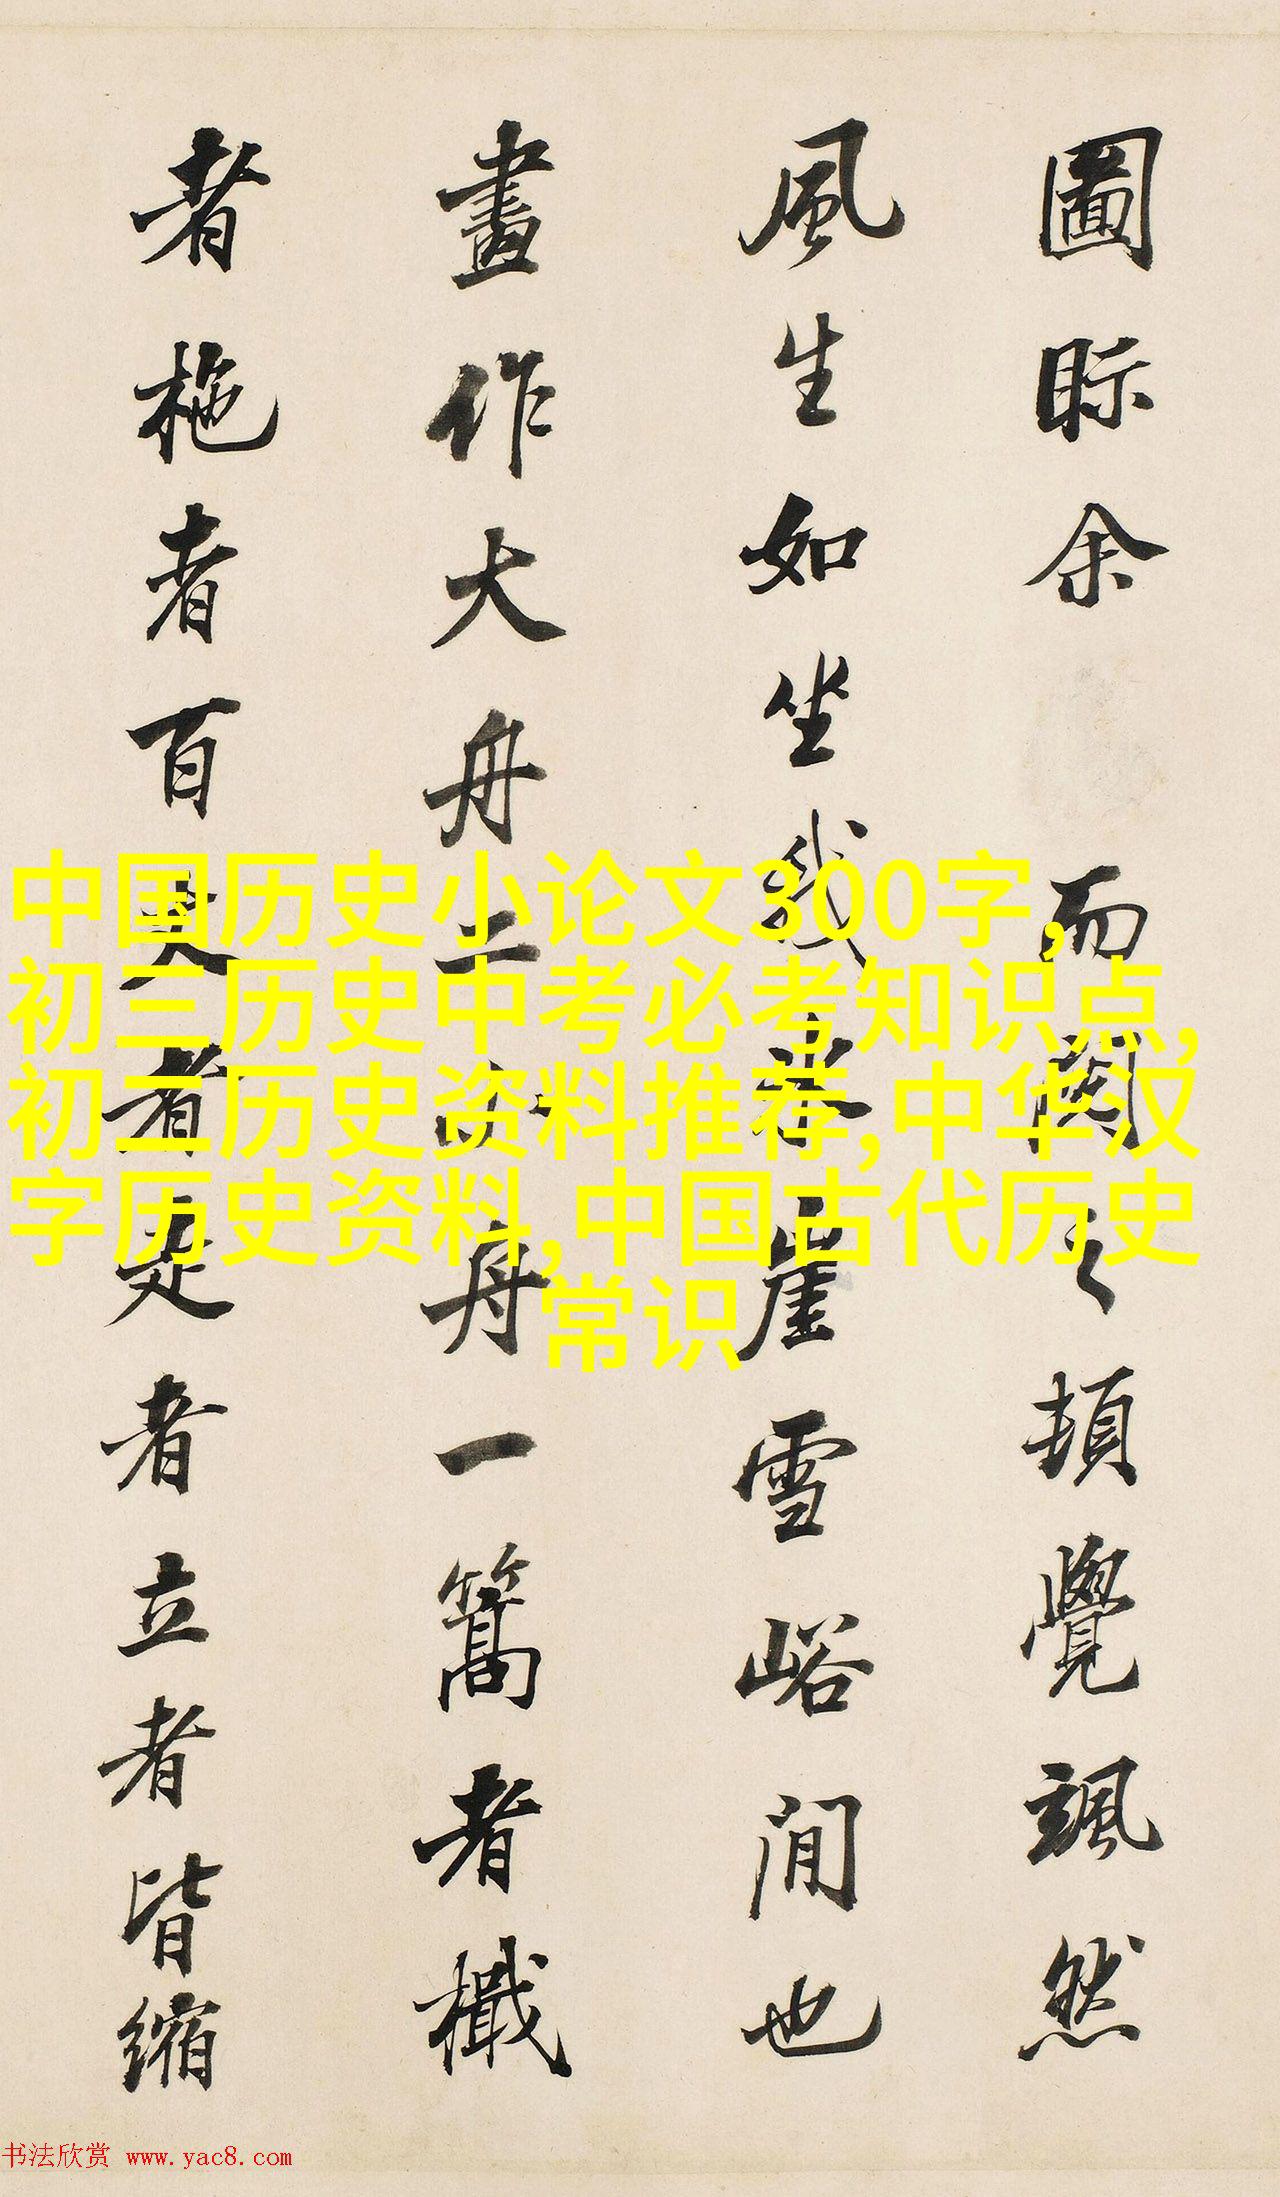 圖眎余 而閱之頓覺颯然
風生如坐我氷崖雪峪間也
畫作大舟二小舟一篙者檝
者柂者百丈者 者立者皆縮
中国历史小论文300字,
初三历史中考必考知识点,
初三历史资料推荐,中华汉
字历史资料,中国古代历史
常识
书法欣赏 www.yac8.com